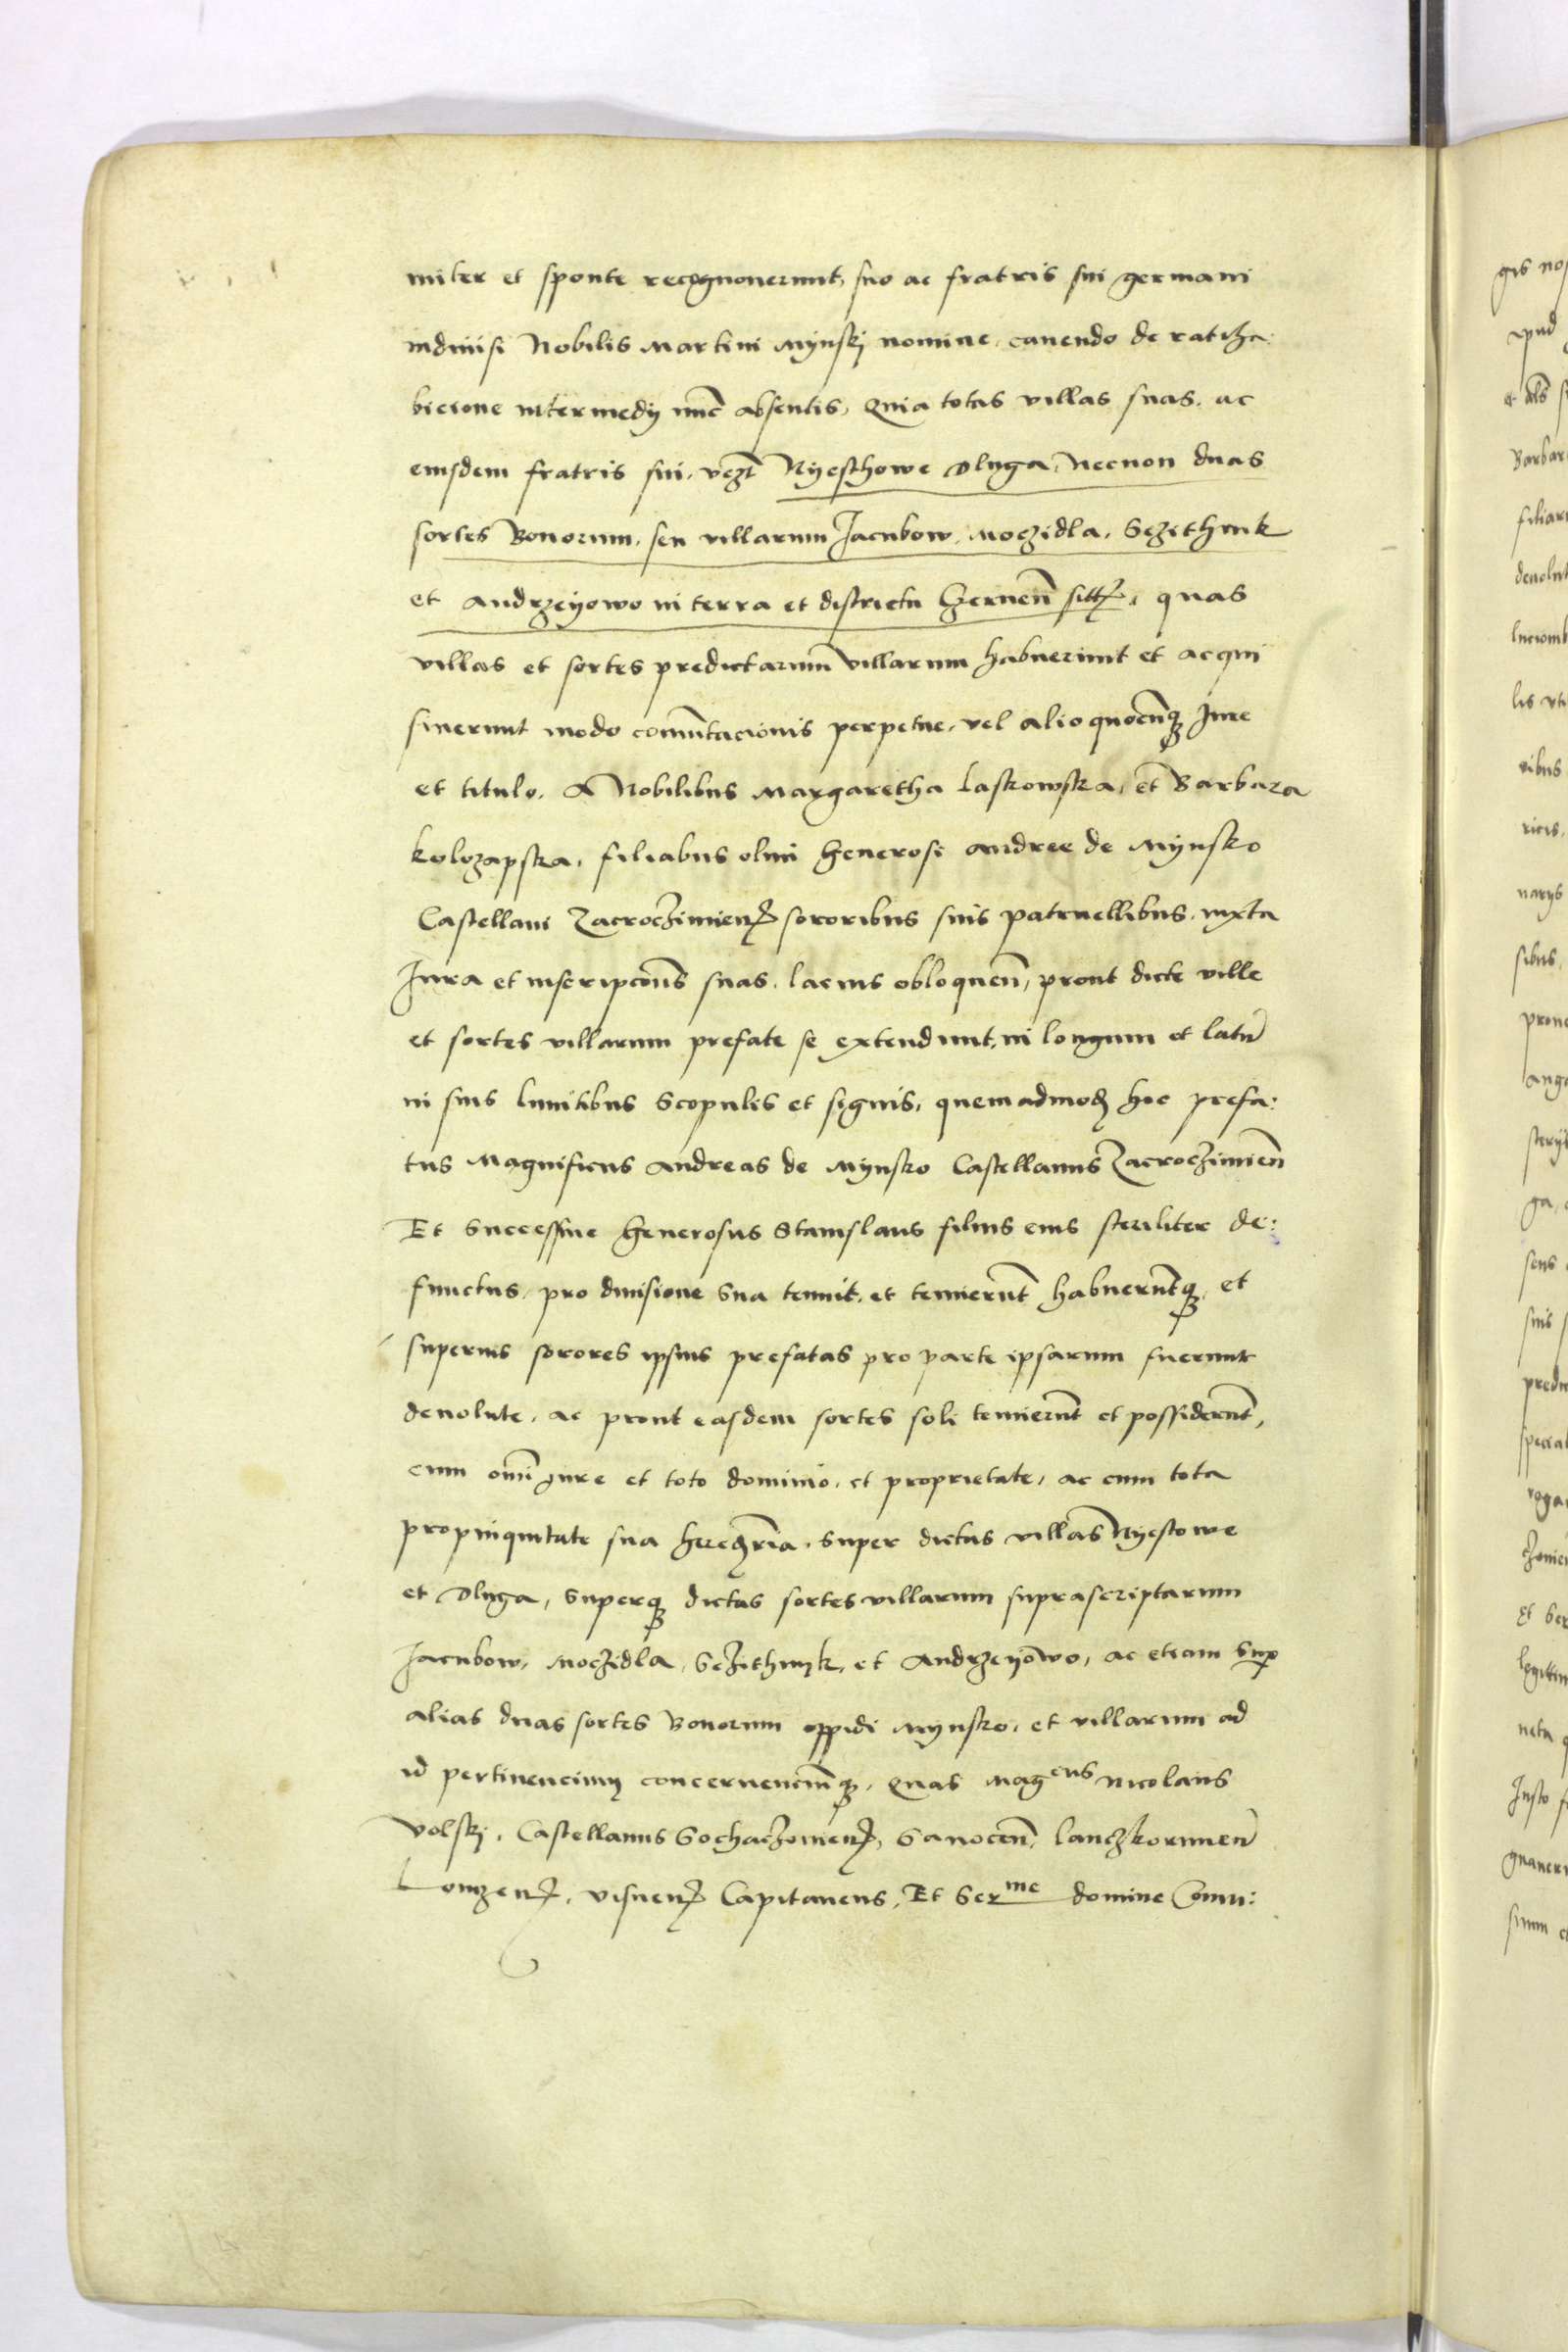 miter et sponte recognoverunt, suo ac fratris sui germani
indivisi Nobilis Martini Mynskj nomine, cavendo de ratiha:
bicione intermedij nunc absentis, Quia totas villas suas, ac
eiusdem fratris sui, vezt Nyesthowe Dluga, Necnon duas
sortes Bonorum, seu villarum Jacubow, Moczidla, Sczithnik
et Andrzeyowo in terra et districtu Czernen sitt, quas
villas et sortes predictarum villarum habuerunt et acqui
siverunt modo comutacionis perpetue, vel alio quocunq Jure
et titulo, A Nobilibus Margaretha Laskowska, et Barbara
kolozapska, filiabus olim Generosi Andree de Mynsko
Castellani Zacrocziminien sororibus suis patruellibus, iuxta
Jura et inscripcões suas, lacius obloquen, prout dicte ville
et sortes villarum prefate se extendunt, in longum et latũ
in suis limitibus Scopulis et signis, quemadmod hoc prefa:
tus Magnificus Andreas de Mynsko Castellanus Zacrocziminien
Et Successive Generosus Stanislaus filius eius steriliter de:
functus, pro divisione Sua tenuit, et tenuerũt habuerũtq, et
superius sorores ipsius prefatas pro parte ipsarum fuerunt
devolute, ac prout easdem sortes soli tenuerũt et possiderũt,
cum omi jure et toto dominio, et proprietate, ac cum tota
propinquitate sua hereẓria, Super dictas villas Nyestowe
et Dluga, Superq dictas sortes villarum suprascriptarum
Jacubow, Moczidla, Sczithnyk, et Andrzeyowo, ac etiam Sup
alias duas sortes Bonorum oppidi Mynsko, et villarum ad
id pertinencium concernenciumq, Quas Mag^cus Nicolaus
Volskj, Castellanus Sochaczovien, Sanocen, Lanczkorunen
Lomzen, Visnen Capitaneus, Et Ser^me domine Comu: